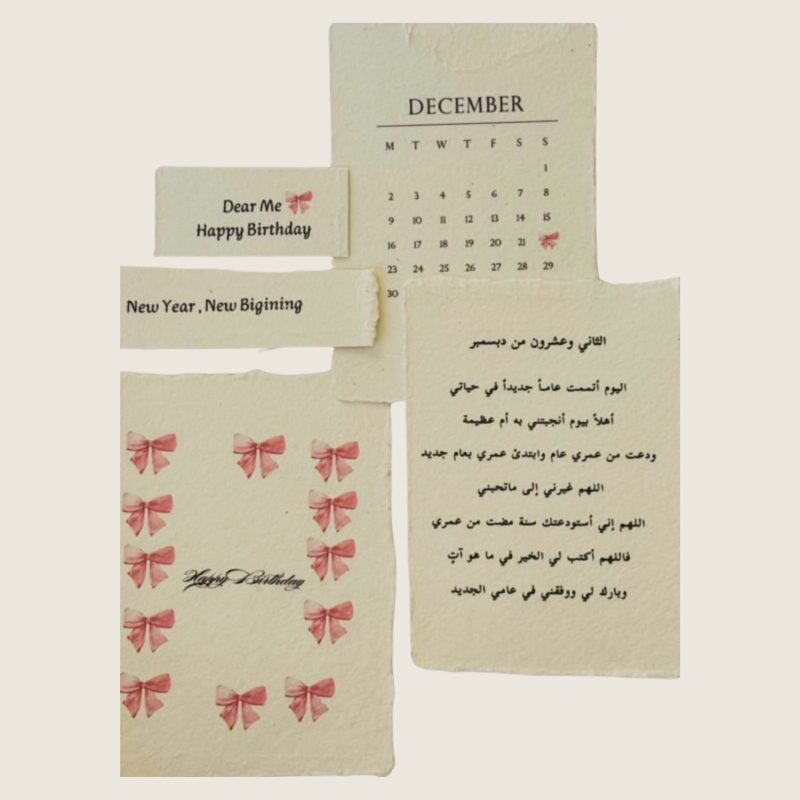 DECEMBER
M T W T F S S
1
2 3 4 5 6 7 8
9 10 11 12 13 14 15
16 17 18 19 20 21
23 24 25 26 27 28 29
30
Dear Me
Happy Birthday
New Year , New Bigining
الثاني وعشرون من ديسمبر
اليوم أتممت عامـاً جديداً في حياتي
أهلاً بيوم أنجبتني به أم عظيمة
ودعت من عمري عام وابتدئ عمري بعام جديد
اللهم غيرني إلى ماتحبني
اللهم إني أستودعتك سنة مضت من عمري
فاللهم أكتب لي الخير في ما هو آتٍ
وبارك لي ووفقني في عامي الجديد
Happy Birthday